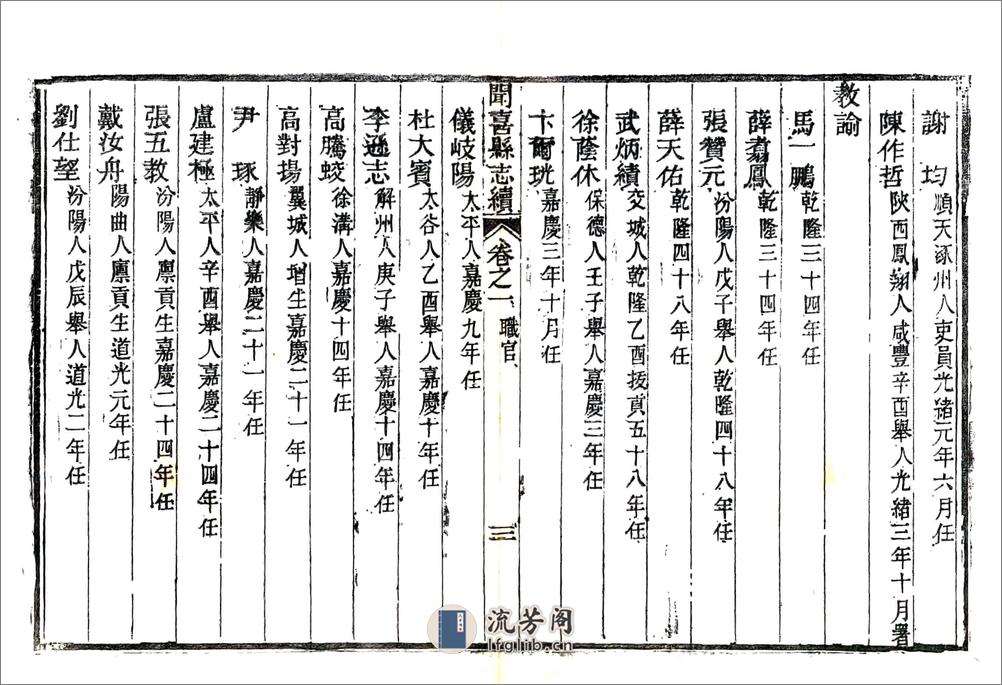 謝　均順天涿州人吏員光緒元年六月任
陳作哲陝西鳳翔人咸豐辛酉舉人光緒三年十月署
教諭
馬一鵬乾隆三十四年任
薛翥鳳乾隆三十四年任
張贊元汾陽人戊子舉人乾隆四十八年任
薛天佑乾隆四十八年任
武炳續交城人乾隆乙酉拔貢五十八年任
徐蔭休保德人壬子舉人嘉慶三年任
卞爾珖嘉慶三年十月任
聞喜縣志續 卷之一 職官 三
儀岐陽太平人嘉慶九年任
杜大賓太谷人乙酉舉人嘉慶十年任
李遜志解州人庚子舉人嘉慶十四年任
高騰蛟徐溝人嘉慶十四年任
高對揚翼城人增生嘉慶二十一年任
尹　琢靜樂人嘉慶二十一年任
盧建極太平人辛酉舉人嘉慶二十四年任
張五教汾陽人廩貢生嘉慶二十四年任
戴汝舟陽曲人廩貢生道光元年任
劉仕望汾陽人戊辰舉人道光二年任
流芳阁
lfglib.cn